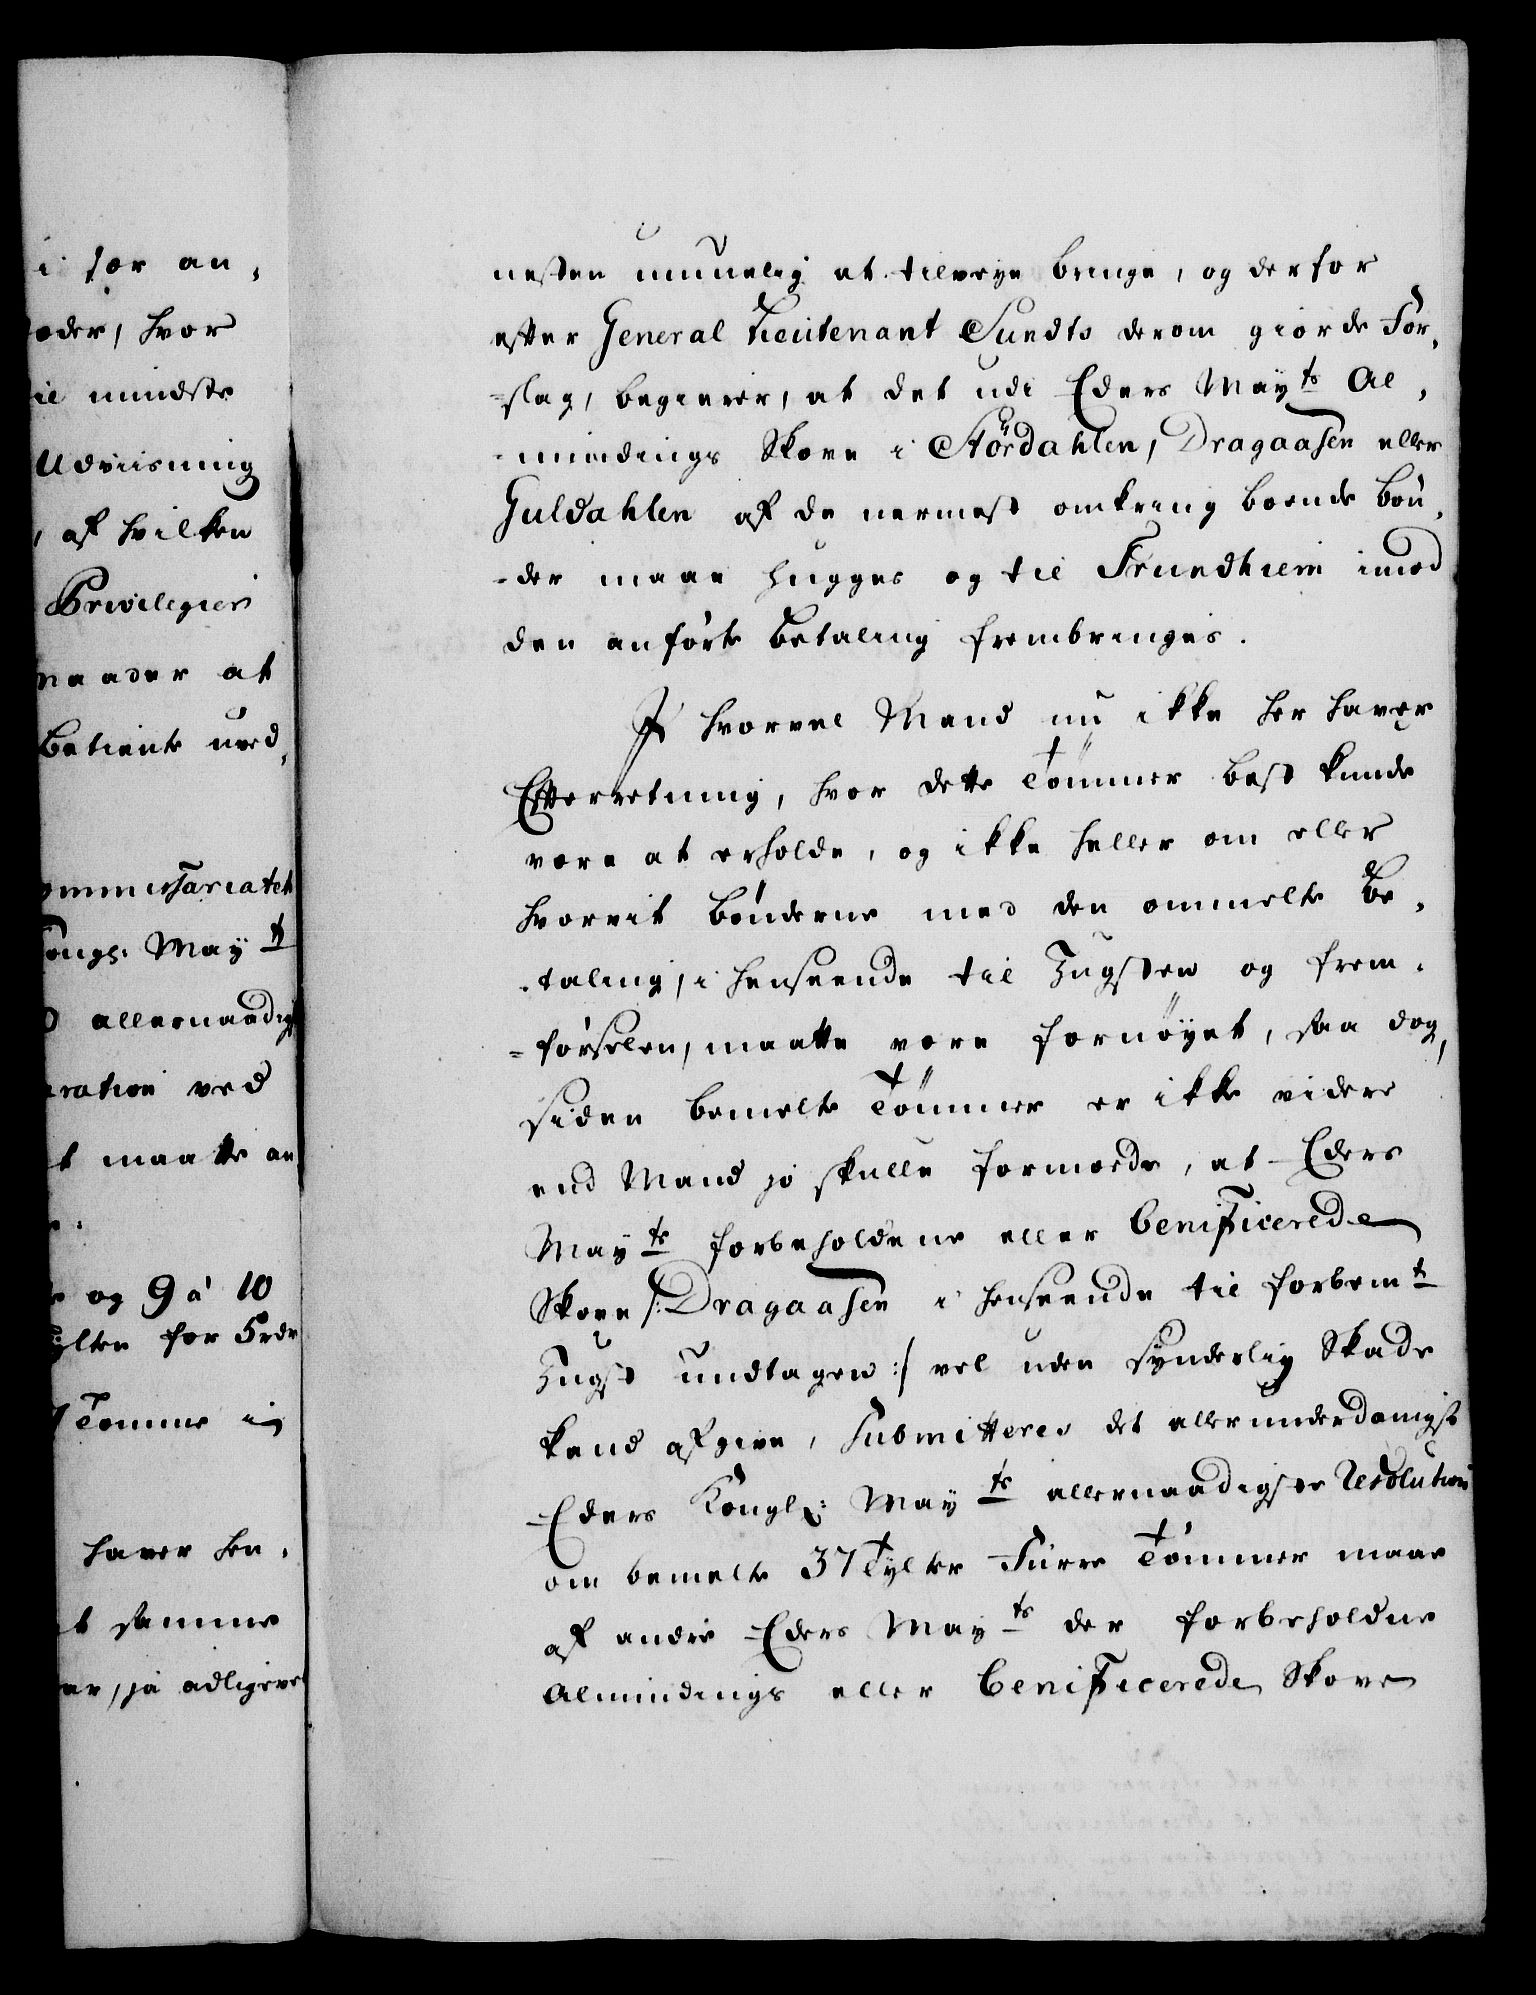 i sær an,
æder, hvor
il mindste
Udviisning
, af hvilken
Privilegier
maader at
Betiente ved,
ommissariatet
ongs: May ts
allernaadigst
ration ved
t maatte an
og 9 á 10
ylten for 5 rdr
Tomme i
haver hen,
t samme
er, ja adligeve
nesten umuelig at tilveye bringe, og derfor
efter General Lieutenant Sundts derom giorde For,
=slag, begierer, at det udi Eders May ts Al,
=mindings Skove i Størdahlen, Dragaasen eller
Guldahlen af de nermest omkring boende Bøn,
=der maae hugges og til Trundhiem imod
den anførte Betaling frembringes.
I hvorvel Mand nu ikke her haver
Efterretning, hvor dette Tømmer best kunde
være at erholde, og ikke heller om eller
hvorvit Bønderne med den ommelte Be,
=taling, i henseende til Hugsten og frem,
=førselen, maatte være fornøyet, saa dog,
siden bemelte Tømmer er ikke videre
end Mand jo skulle formode, at Eders
May ts forbeholdene eller benificerede
Skove /: Dragaasen i henseende til forbem t
Hugst undtagen :/ vel uden synderlig Skade
kand afgive, submitteres det allerunderdanigst
Eders Kongl: May ts allernaadigste Resolution
om bemelte 37 Tylter Furre Tømmer maae
af andre Eders May ts der forbeholdne
Almindings eller benificerede Skove